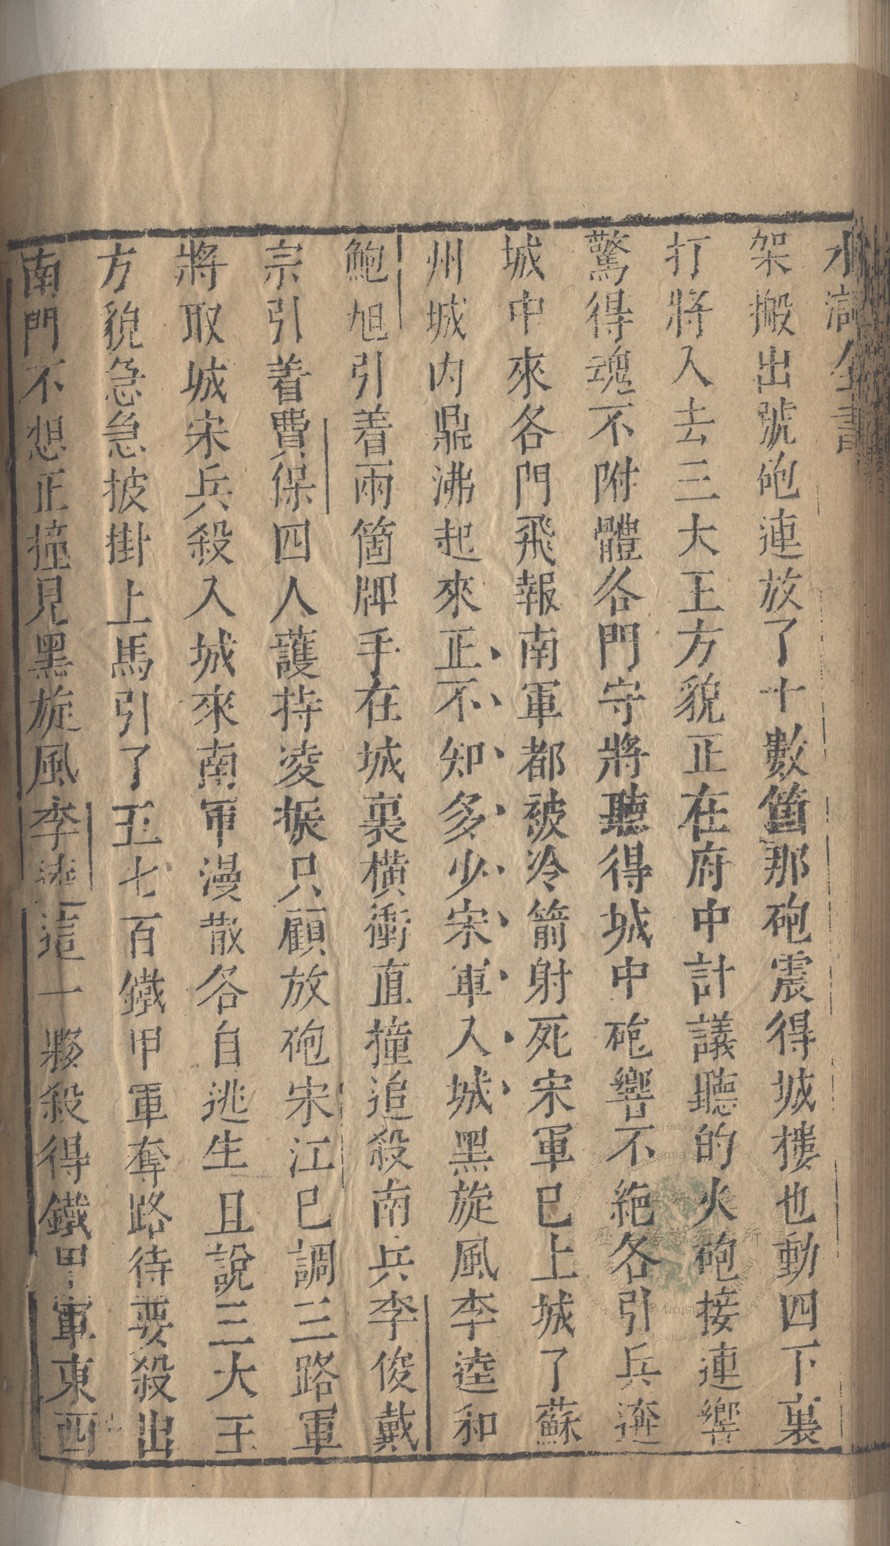 水滸全書
架搬出號砲連放了十數箇那砲震得城樓也動四下裏
打將入去三大王方貌正在府中計議聽的火砲接連響
驚得魂不附體各門守將聽得城中砲響不絕各引兵遶
城中來各門飛報南軍都被冷箭射死宋軍已上城了蘇
州城内鼎沸起來正不知多少宋軍入城黑旋風李逵和
鮑旭引着兩箇牌手在城裏橫衝直撞追殺南兵李俊戴
宗引着費保四人護持凌振只顧放砲宋江已調三路軍
將取城宋兵殺入城來南軍漫散各自逃生且說三大王
方貌急急披掛上馬引了五七百鐵甲軍奪路待要殺出
南門不想正撞見黑旋風李逵這一夥殺得鐵甲軍東西